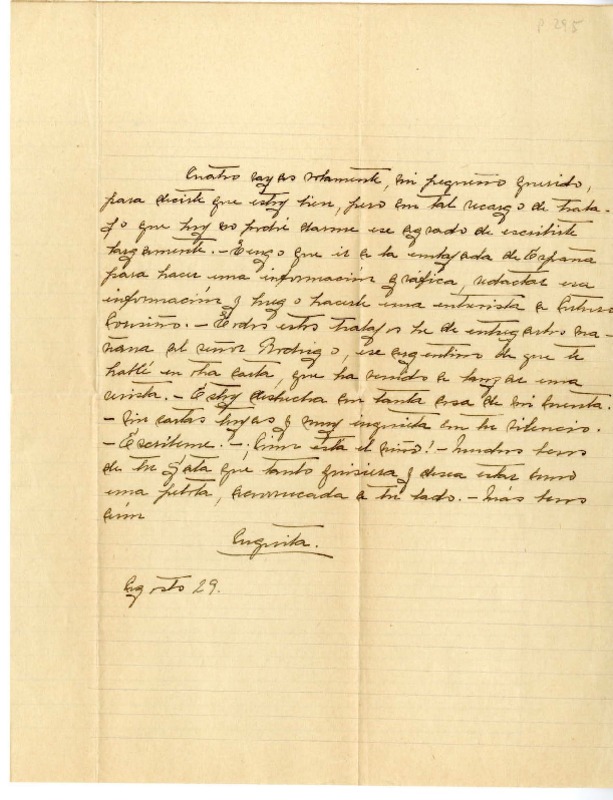 P. 295
Cuatro rayas solamente, mi pequeño querido,
para decirte que estoy bien, pero con tal recargo de traba-
jo que hoy no podré darme ese agrado de escribirte
largamente. - Tengo que ir a la embajada de España
para hacer una información gráfica, redactar esa
información y luego hacerle una entrevista a Arturo
Cousiño. - Todos estos trabajos he de entregarlos ma-
ñana al señor Rodrigo, ese argentino de que te
hablé en otra carta, que ha venido a lanzar una
revista. - Estoy deshecha con tanta cosa de mi cuenta.
- Sin cartas tuyas y muy inquieta con tu silencio.
- Escríbeme. - ¡Cómo está el niño! - Muchos besos
de tu gata que tanto quisiera y desea estar como
una pelota, acurrucada a tu lado. - Más besos
aún
Agosto 29.